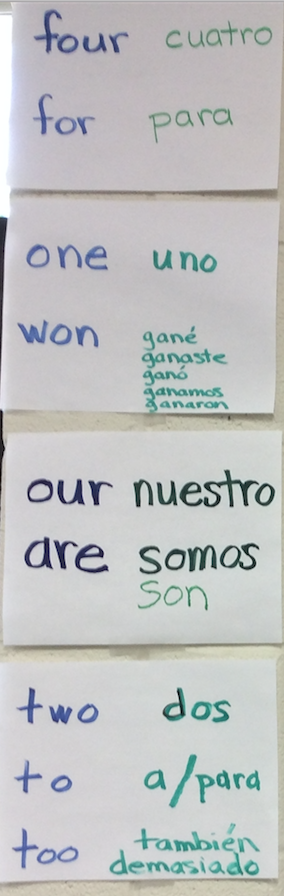 four cuatro
for para
one uno
won gané
ganaste
ganó
ganamos
ganaron
our nuestro
are somos
son
two dos
to a/para
too también
demasiado